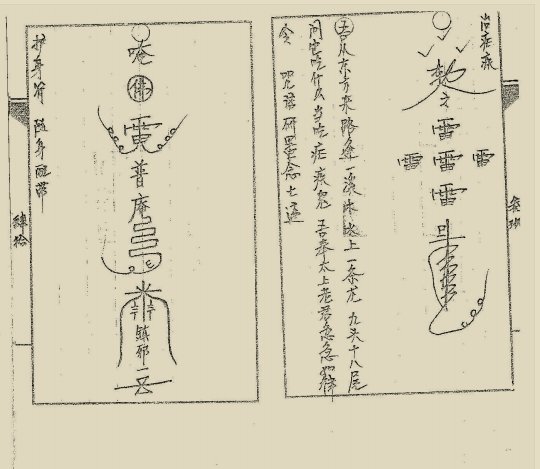 治疟疾
敕令
雷
雷 雷 雷
雷
吾从东方来路逢一溪水 水上一条龙 九头十八尾
问它吃什么 当吃疟疾鬼 吾奉太上老君急急如律
令 咒语 研墨念七遍
唵
佛
普庵
镇邪
护身符 随身配带
肆拾